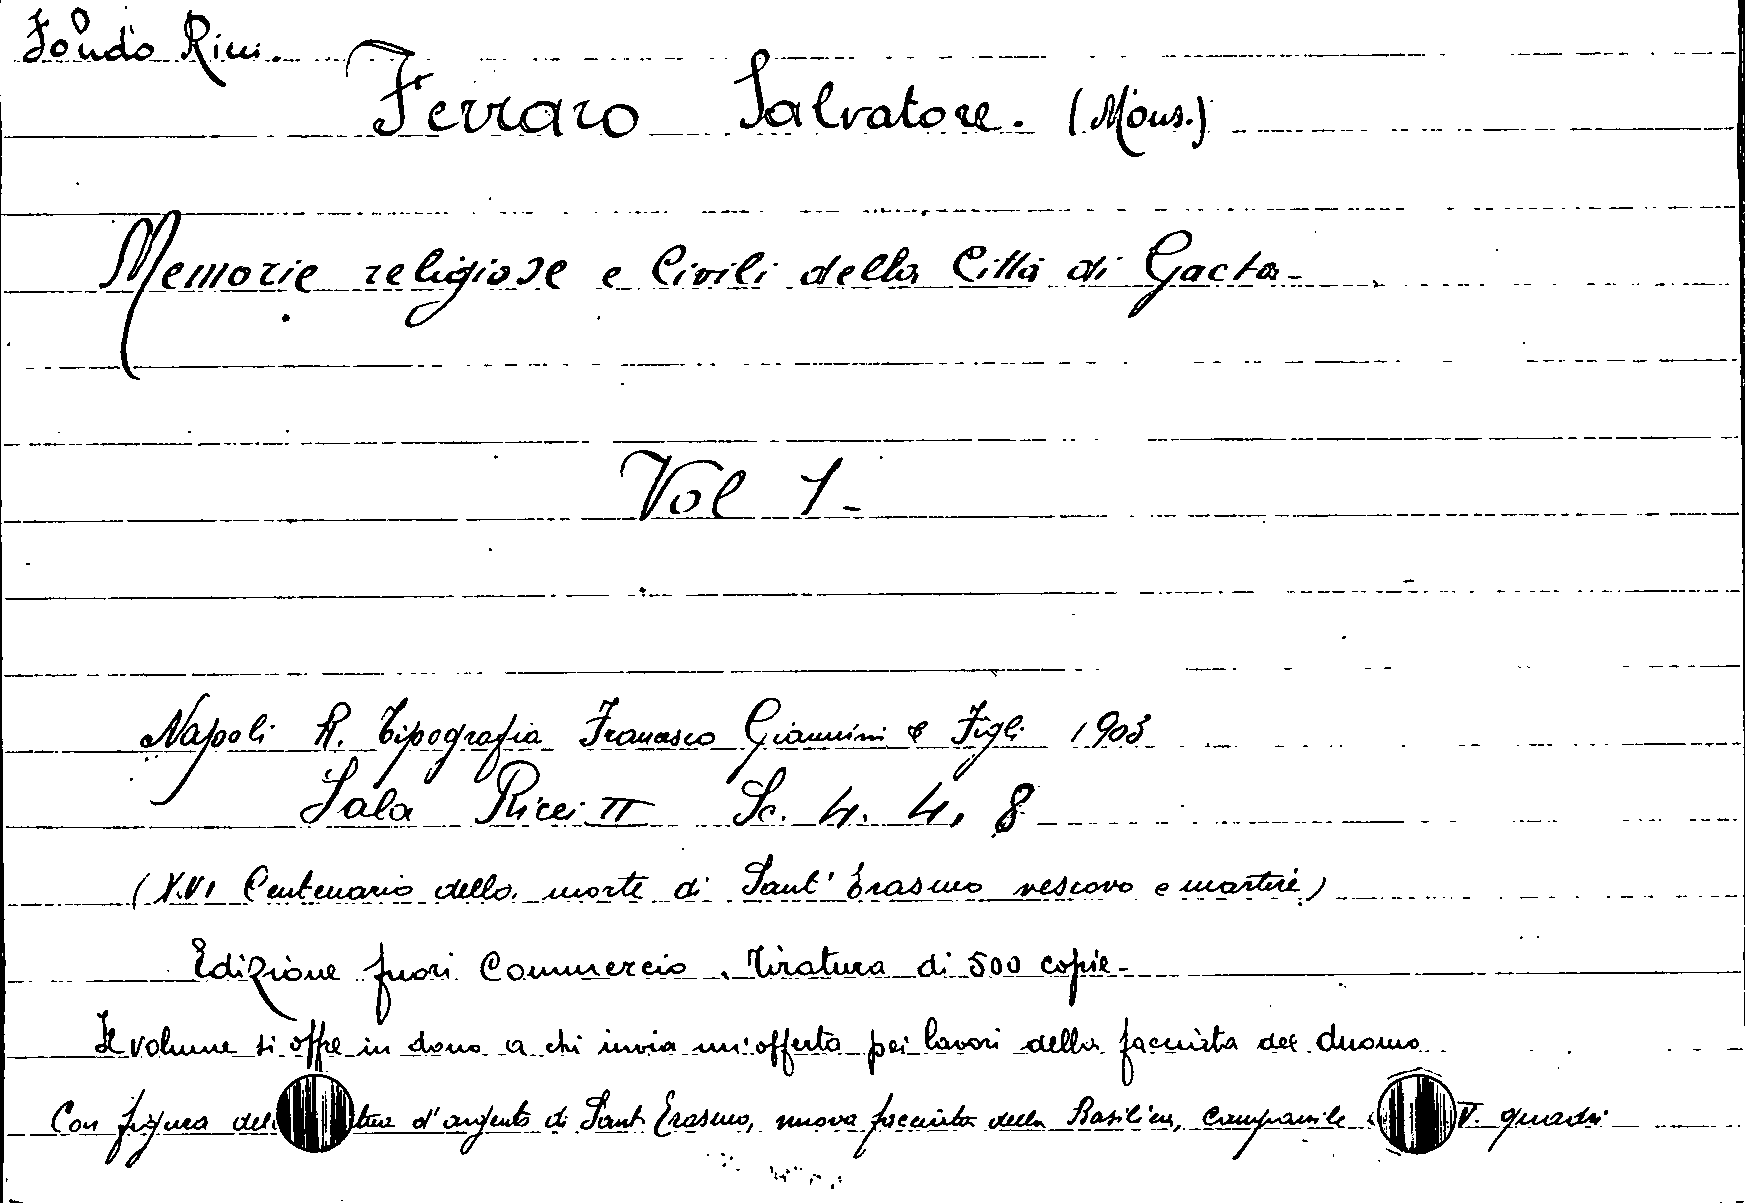 Fondo Ricci.
Ferraro Salvatore. (Mons.)
Memorie religiose e Civili della Città di Gaeta-
Vol 1-
Napoli R. Tipografia Francesco Giannini & Figli 1903
Sala Ricci II Sc. 4. 4, 8
(XVI Centenario della morte di Sant' Erasmo vescovo e martire)
Edizione fuori Commercio. Tiratura di 500 copie-
Il volume si offre in dono a chi invia un'offerta pei lavori della facciata del duomo
Con figura d'argento di Sant Erasmo, nuova facciata della Basilica, campanile V. quadri